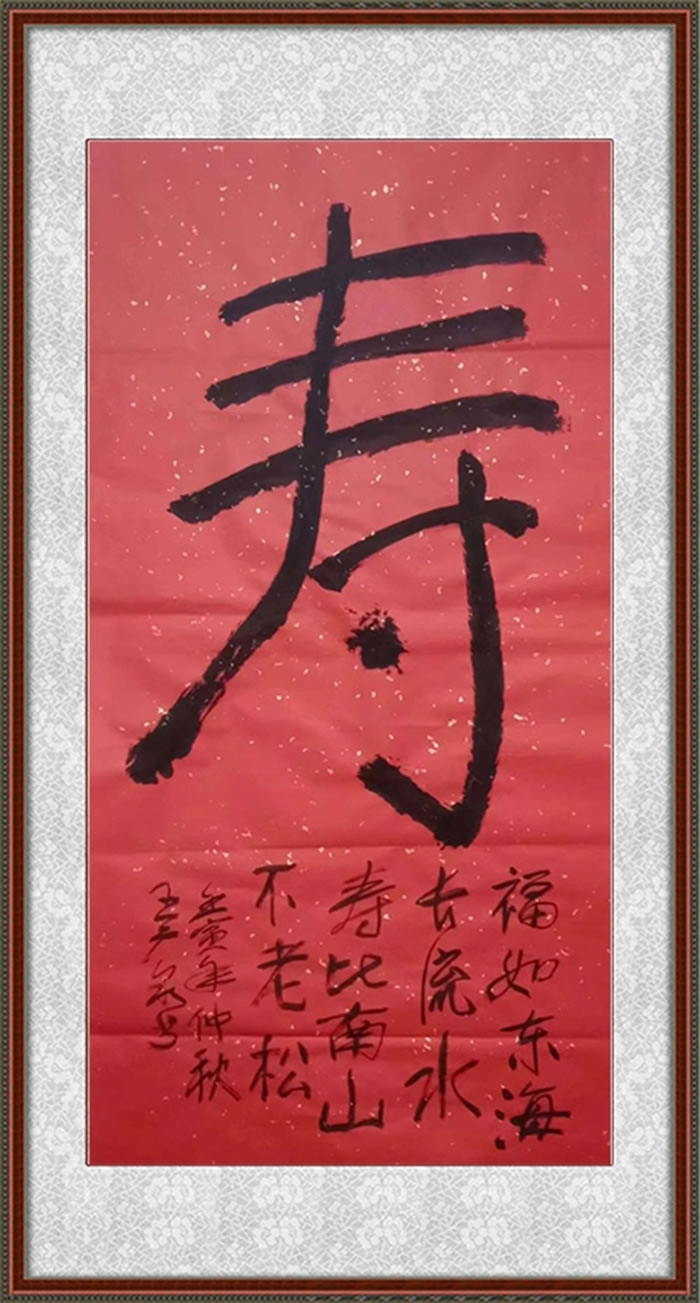 寿
福如东海
长流水
寿比南山
不老松
壬寅年仲秋